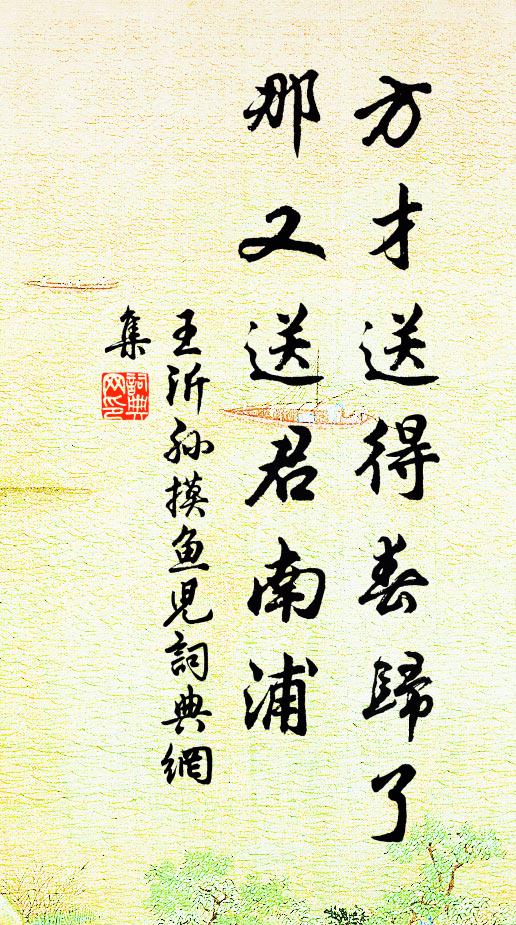 方才送得春歸了
那又送君南浦
王沂孙摸鱼児詞典網
集
詞典
网印